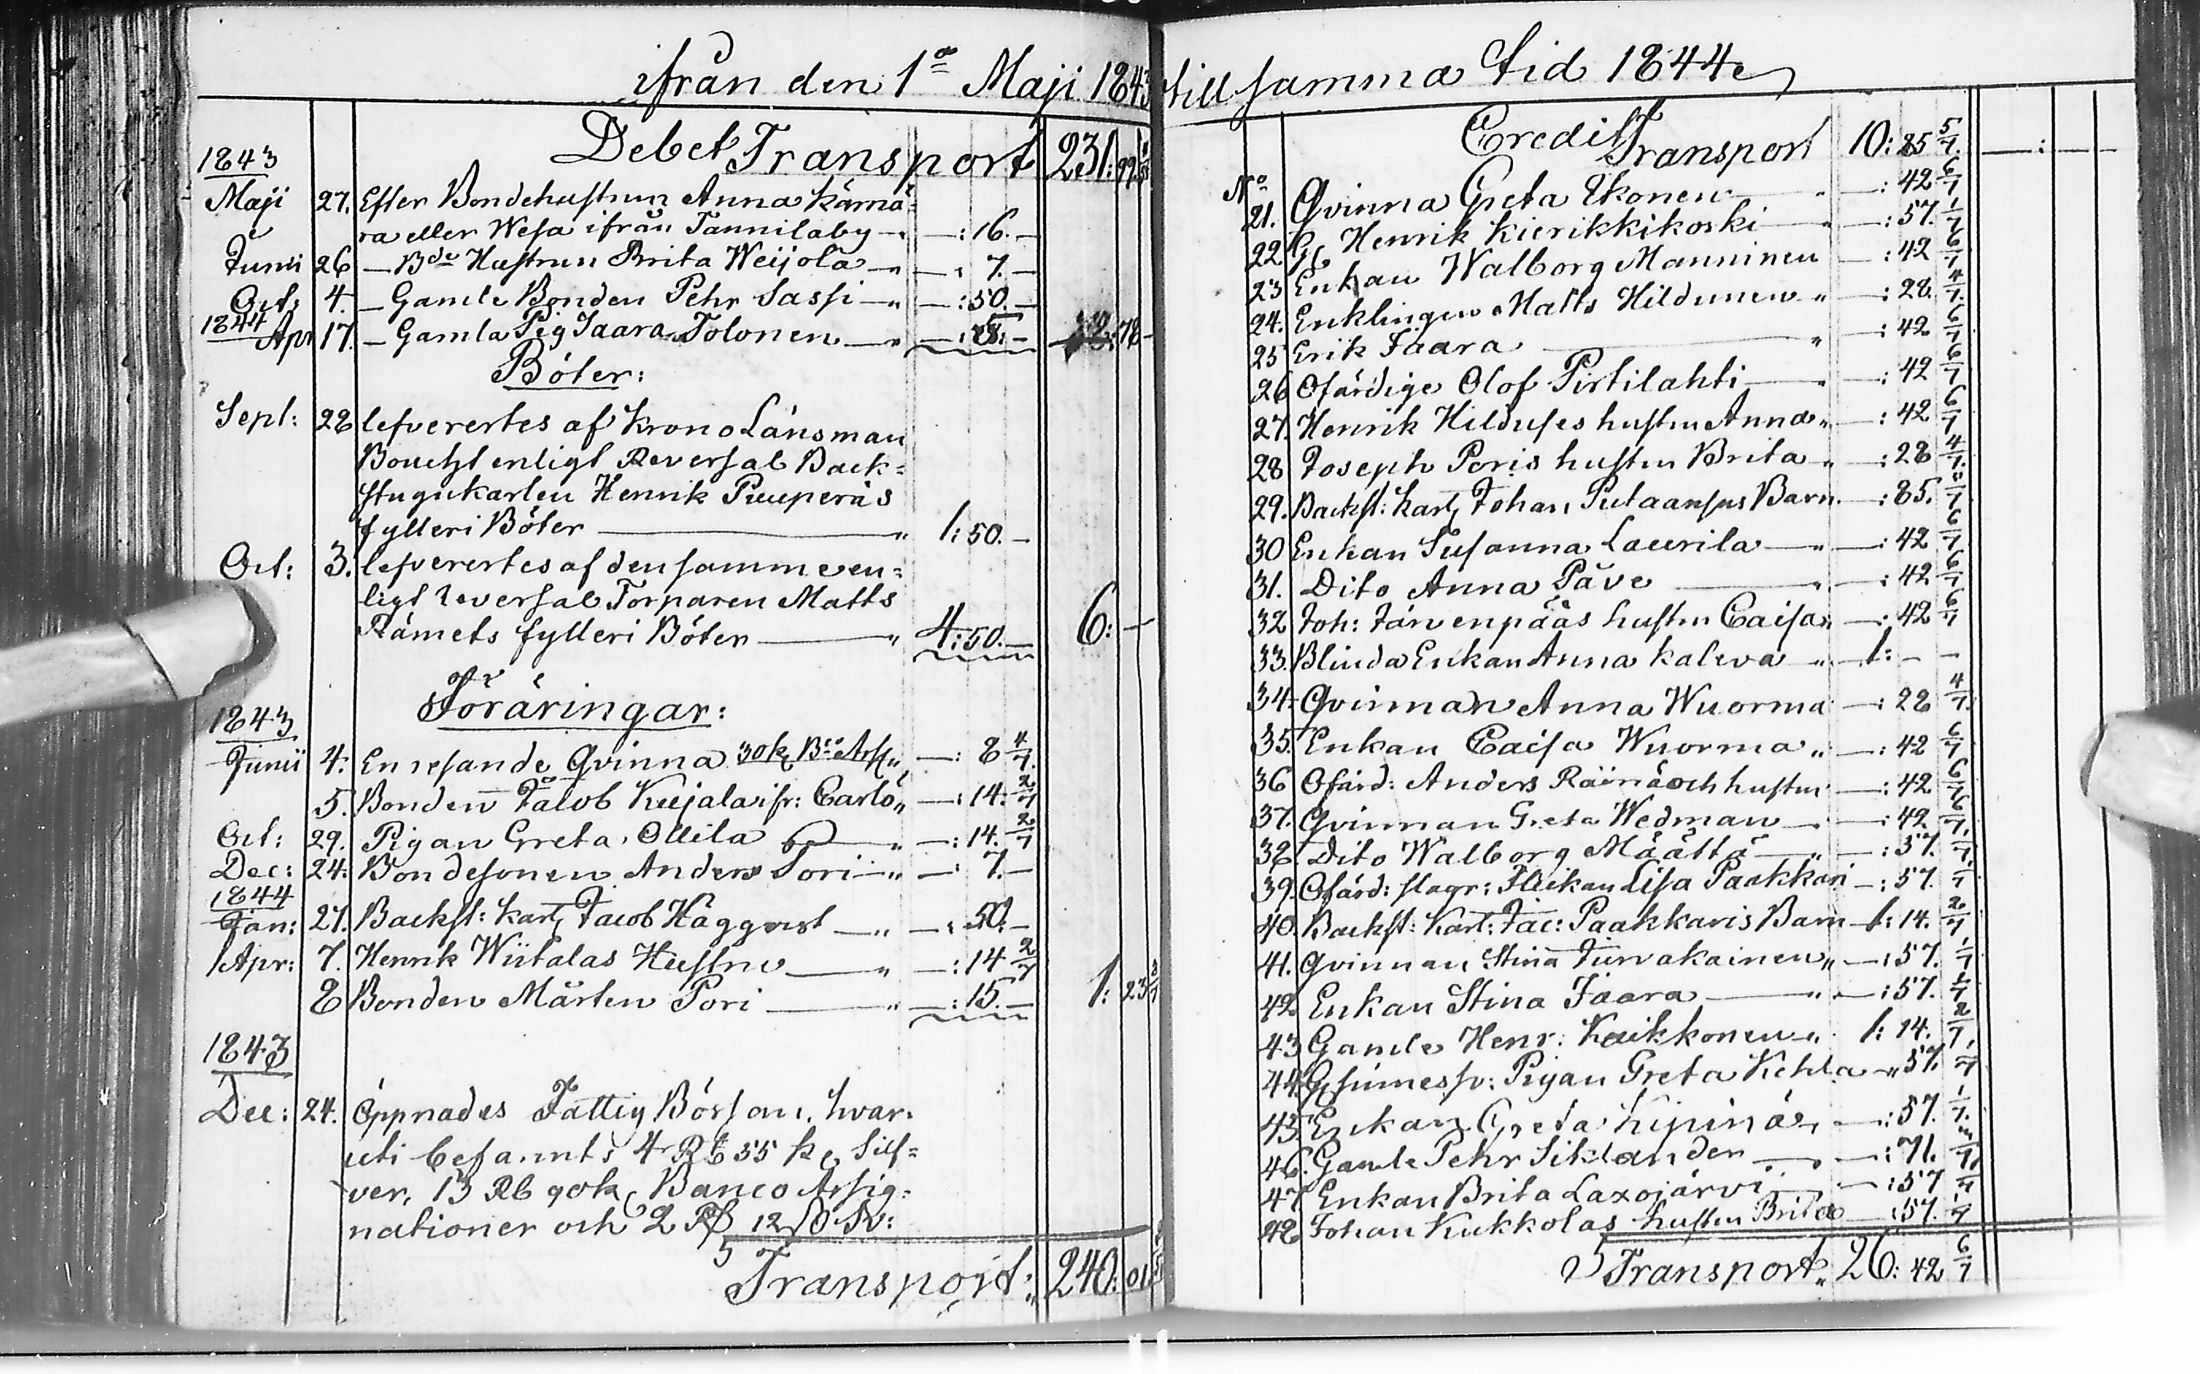 ifrån den 1º Maji 1843
Debet Transport 231: 99
1843
Maji 27. Efter Bondehustrun Anna Kärnä-
ra eller Wesa ifrån Tannilaby — —: 16. —
Junii 26 — Bde Hustrun Brita Weijola — „ — : 7. —
Oct: 4. — Gamle Bonden Pehr Sassi — „ — : 50. —
1844
Apr 17. — Gamla Pig Jaara Tolonen — „ — : 5. — : 78 —
Böter:
Sept: 28 lefverertes af Krono Länsman
Boucht enligt Reversal Back-
stugukarlen Henrik Puuperäs
fylleri Böter — „ 1: 50. —
Oct: 3. lefverertes af den samme en-
ligt reversal Torparen Matts
Rämets fylleri Böter — „ 4: 50. — 6: —
Föräringar:
1843
Junii 4. En resande Qvinna 30 k Bco Ass „ —: 8 4/7.
5. Bonden Jacob Kujala ifr: Carlö „ —: 14: 2/7
Oct: 29. Pigan Greta Ollila — „ —: 14. 2/7
Dec: 24. Bondesonen Anders Pori — „ — : 7. —
1844
Jan: 27. Backst: karl Jacob Häggqvist — „ — : 50. —
Apr: 7. Henrik Wiitalas Hustru — „ —: 14 2/7
8 Bonden Mårten Pori — „ —: 15. — 1: 23
1843
Dec: 24. Öppnades Fattig Börsan, hvar-
uti befanns 4 Rb 55 k Silf-
ver, 13 Rb 90 k Banco Assig-
nationer och 2 Rd 12 ß Sv:
Transport: 240: 01
till samma tid 1844
Credit Transport 10: 85 5/7. — : —
No
21. Qvinna Greta Ekonen — „ —: 42 6/7
22 Gl Henrik Kierikkikoski — „ —: 57. 1/7
23 Enkan Walborg Manninen —: 42 6/7
24. Enklingen Matts Hildunen „ —: 28. 4/7.
25 Erik Jaara — „ —: 42 6/7
26 Ofärdige Olof Pirtilahti — „ —: 42 6/7
27. Henrik Hilduses hustru Anna „ —: 42 6/7
28 Joseph Poris hustru Brita „ —: 28 4/7.
29. Backst: karl Johan Putaansus Barn. —: 85. 5/7
30 Enkan Susanna Laurila — „ —: 42 6/7
31. Dito Anna Päve — „ —: 42 6/7
32 Joh: Järvenpääs hustru Caisa „ —: 42 6/7
33. Blinda Enkan Anna Kaleva „ 1: — —
34. Qvinnan Anna Wuorma —: 28 4/7.
35. Enkan Caisa Wuorma „ —: 42 6/7
36 Ofärd: Anders Räinä och hustru —: 42 6/7
37. Qvinnan Greta Wedman — —: 42. 6/7.
38 Dito Walborg Määttä — „ —: 57. 1/7
39. Ofärd: slagr: Flickan Lisa Paakkari —: 57. 1/7
40. Backst: Karl: Jac: Paakkaris Barn 1: 14. 2/7
41. Qvinnan Stina Turvakainen „ —: 57. 1/7
42 Enkan Stina Jaara — „ —: 57. 1/7
43 Gamle Henr: Kaikkonen „ 1: 14. 2/7.
44. Sinnessv: Pigan Greta Kehla „ 57. 1/7
45. Enkan Greta Kipinä — —: 57. 1/7.
46. Gamle Pehr Siklander — —: 71. 3/7.
47 Enkan Brita Laxojärvi —: 57 1/7
48 Johan Kukkolas hustru Brita —: 57. 1/7
Transport „ 26: 42 6/7